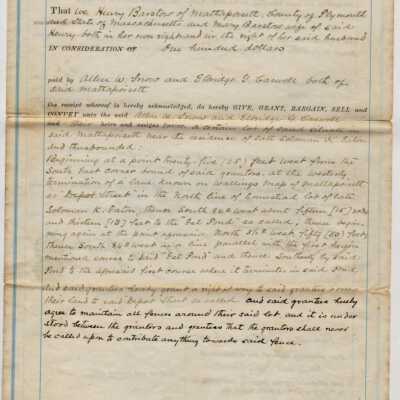 That we Henry Barstow of Mattapoisett, County of Plymouth
and State of Massachusetts and Mary Barstow wife of said
Henry both in her own right and in the right of her said husband
IN CONSIDERATION OF One hundred dollars
paid by Allen W. Snow and Elbridge G. Caswell both of
said Mattapoisett
the receipt whereof is hereby acknowledged, do hereby GIVE, GRANT, BARGAIN, SELL and
CONVEY unto the said Allen W. Snow and Elbridge G. Caswell
and their heirs and assigns forever A certain lot of land situate
said Mattapoisett near the residence of late Solomon K. Eaton
and thus bounded:
Beginning at a point twenty-five (25) feet west from the
South East corner bound of said grantors, at the westerly
termination of a lane known on Wallings map of Mattapoisett
as "Depot Street" in the North line of homestead lot of late
Solomon K. Eaton, thence South 84° west about fifteen (15) rods
and thirteen (13) feet to the Eel Pond so called; thence begin-
ning again at the point aforesaid North west fifty (50) feet,
thence South 84° west in a line parallel with the first
mentioned course to said "Eel Pond" and thence Southerly by said
Pond to the aforesaid first course where it terminates in said Pond,
and said grantors hereby grant a right of way to said grantees from
their land to said Depot Street so called. and said grantees hereby
agree to maintain all fences around their said lot and it is under
stood between the grantors and grantees that the grantors shall never
be called upon to contribute anything towards said fence.